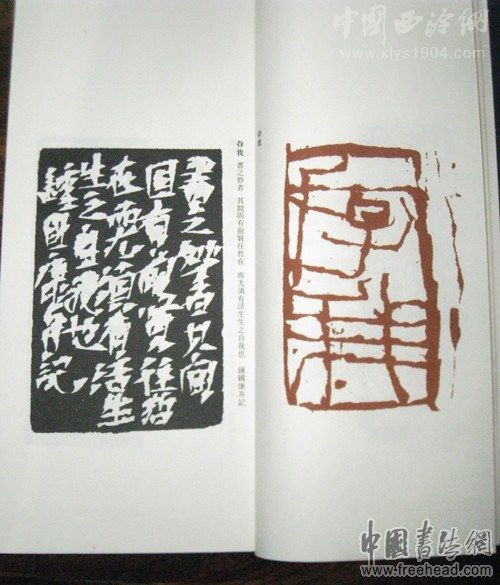 中國西泠網
www.xlys1904.com
存我
存我 書之妙者 其間固有前賢往哲在 而尤須有活生生之自我也 鍾國康并記
書之妙者其间
固有前賢往哲
在而尤須有活生
生之自我也
鍾國康并記
存我
中國書法網
www.freehead.com